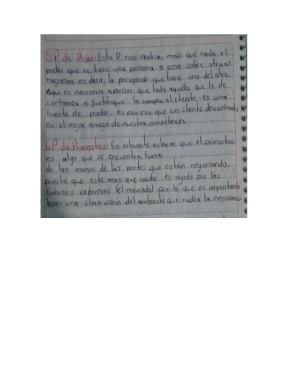 5. P de Poder: Esta P. nos explica, más que nada el
poder que se tiene una persona o cosa sobre otra al
negociar es decir, la percepción que tiene una del otra.
Aqui es necesario apreciar que todo aquello que le de
confianza o justifique la compra al cliente es una
fuente de poder. es por eso que un cliente desconfiado
es el mejor amigo de nuestra competencia.
6. P de Pronostico: Es relevante aclarar que el pronostico
es algo que se encuentra fuera
de las manos de las partes que están negociando,
puesto que este mas que nada es regido por las
fuerzas externas (el mercado) por lo que es importante
tener una clara visión del ambiente que rodea la